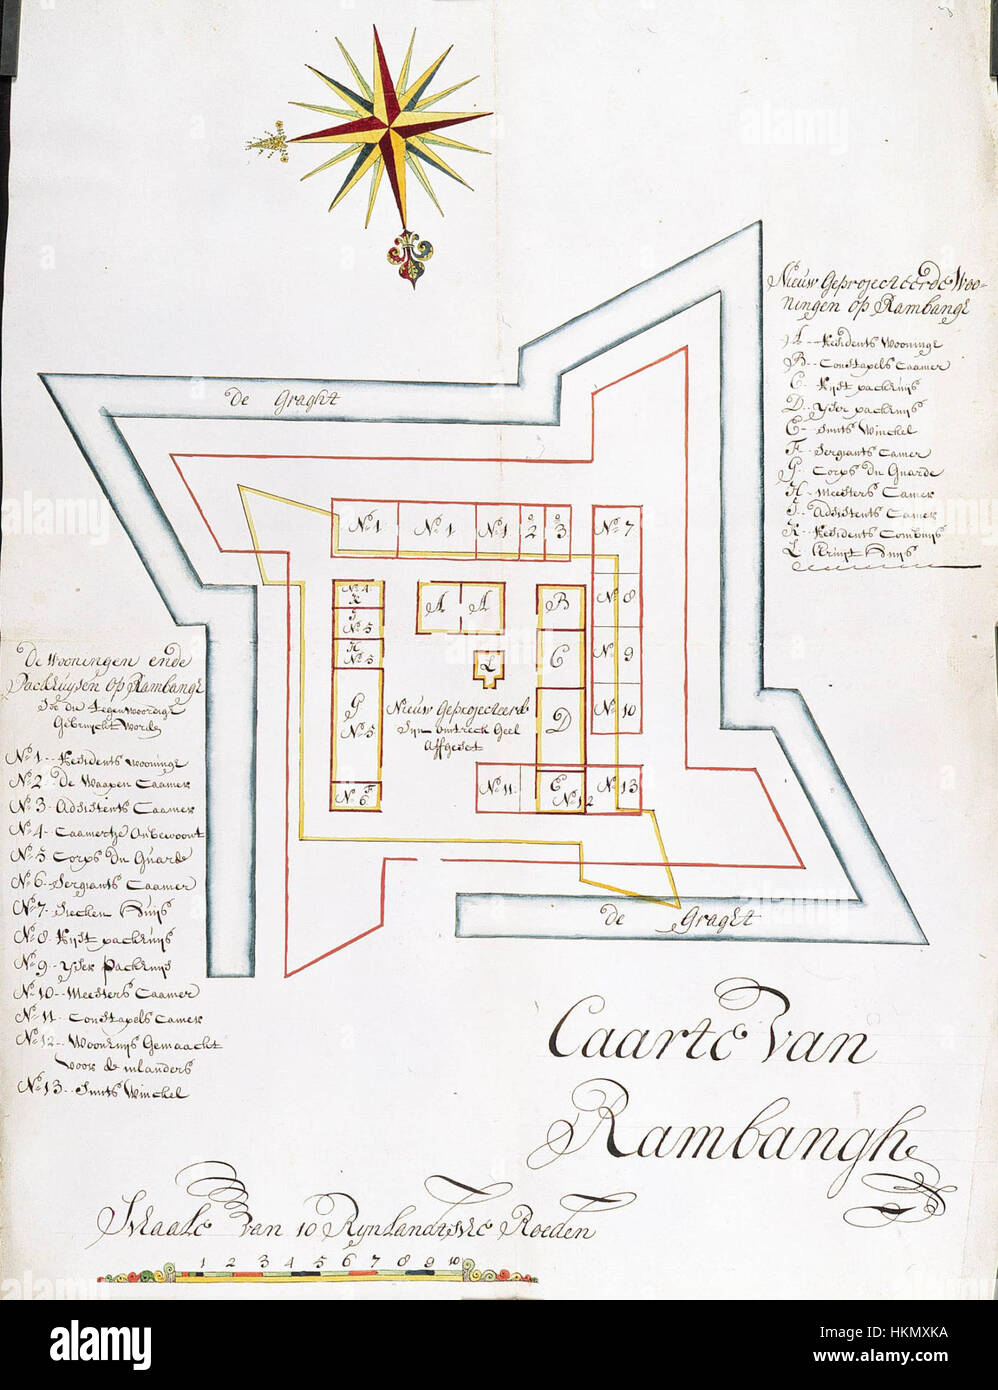 De Graght
Nieuw Geprojecteerde Woo-
ningen op Rambangh
A -- Residents Wooninge
B -- Constapels Caamer
C - Rijst packhuijs
D - Yser packhuijs
E - Smits Winckel
F - Sergiants Camer
G - Corps du Guarde
H - Meesters Camer
I - Adsistents Camer
K - Residents Combuijs
L - Kruijt Huijs
No 1
No 1
No 1
No 2
No 3
No 7
No 4
K
A
A
B
No 8
I
No 5
H
No 5
L
C
No 9
G
No 5
Nieuw Geprojecteerde
Sijn omtreck Geel
Affgeset
D
No 10
F
No 6
No 11
E
No 12
No 13
De Wooningen ende
Packhuysen op Rambangh
Soo du tegenwoordigh
Gebruyckt Worde
No 1 -- Residents Wooninge
No 2 - De Waapen Caamer
No 3 - Adsistents Caamer
No 4 - Caamertje Onbewoont
No 5 - Corps du Guarde
No 6 - Sergiants Caamer
No 7 - Siecken Huijs
No 8 - Rijst packhuijs
No 9 - Yser Packhuijs
No 10 -- Meesters Caamer
No 11 - Constapels Camer
No 12 -- Woonhuijs Gemaackt
voor de inlanders
No 13 -- Smits Winckel
de Graght
Caarte van
Rambangh
Schaale van 10 Rynlandtsche Roeden
1 2 3 4 5 6 7 8 9 10
alamy
Image ID: HKMXKA
www.alamy.com